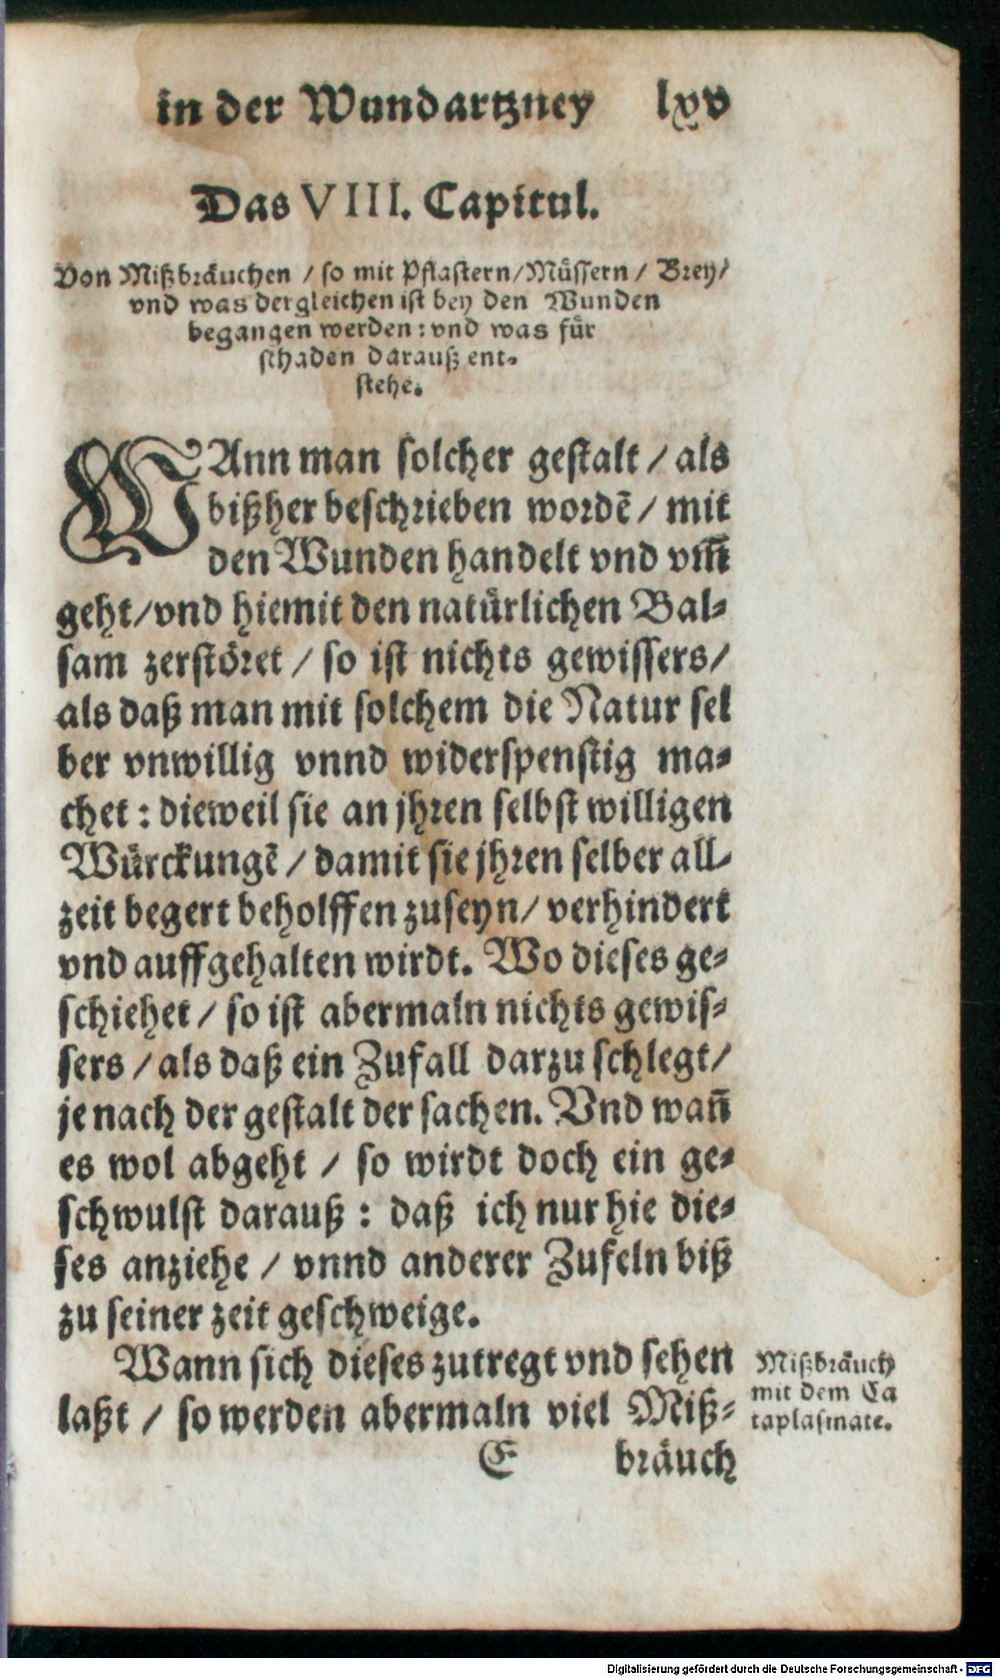 in der Wundartzney lxv
Das VIII. Capitul.
Von Mißbräuchen / so mit Pflastern / Müssern / Brey /
vnd was dergleichen ist bey den Wunden
begangen werden: vnd was für
schaden darauß ent-
stehe.
WAnn man solcher gestalt / als
bißher beschrieben wordē / mit
den Wunden handelt vnd vm̄
geht / vnd hiemit den natürlichen Bal-
sam zerstöret / so ist nichts gewissers /
als daß man mit solchem die Natur sel
ber vnwillig vnnd widerspenstig ma-
chet: dieweil sie an jhren selbst willigen
Würckungē / damit sie jhren selber all-
zeit begert beholffen zuseyn / verhindert
vnd auffgehalten wirdt. Wo dieses ge-
schiehet / so ist abermaln nichts gewis-
sers / als daß ein Zufall darzu schlegt /
je nach der gestalt der sachen. Vnd wañ
es wol abgeht / so wirdt doch ein ge-
schwulst darauß: daß ich nur hie die-
ses anziehe / vnnd anderer Zufeln biß
zu seiner zeit geschweige.
Wann sich dieses zutregt vnd sehen
laßt / so werden abermaln viel Miß-
Mißbräuch
mit dem Ca
taplasmate.
E bräuch
Digitalisierung gefördert durch die Deutsche Forschungsgemeinschaft - DFG